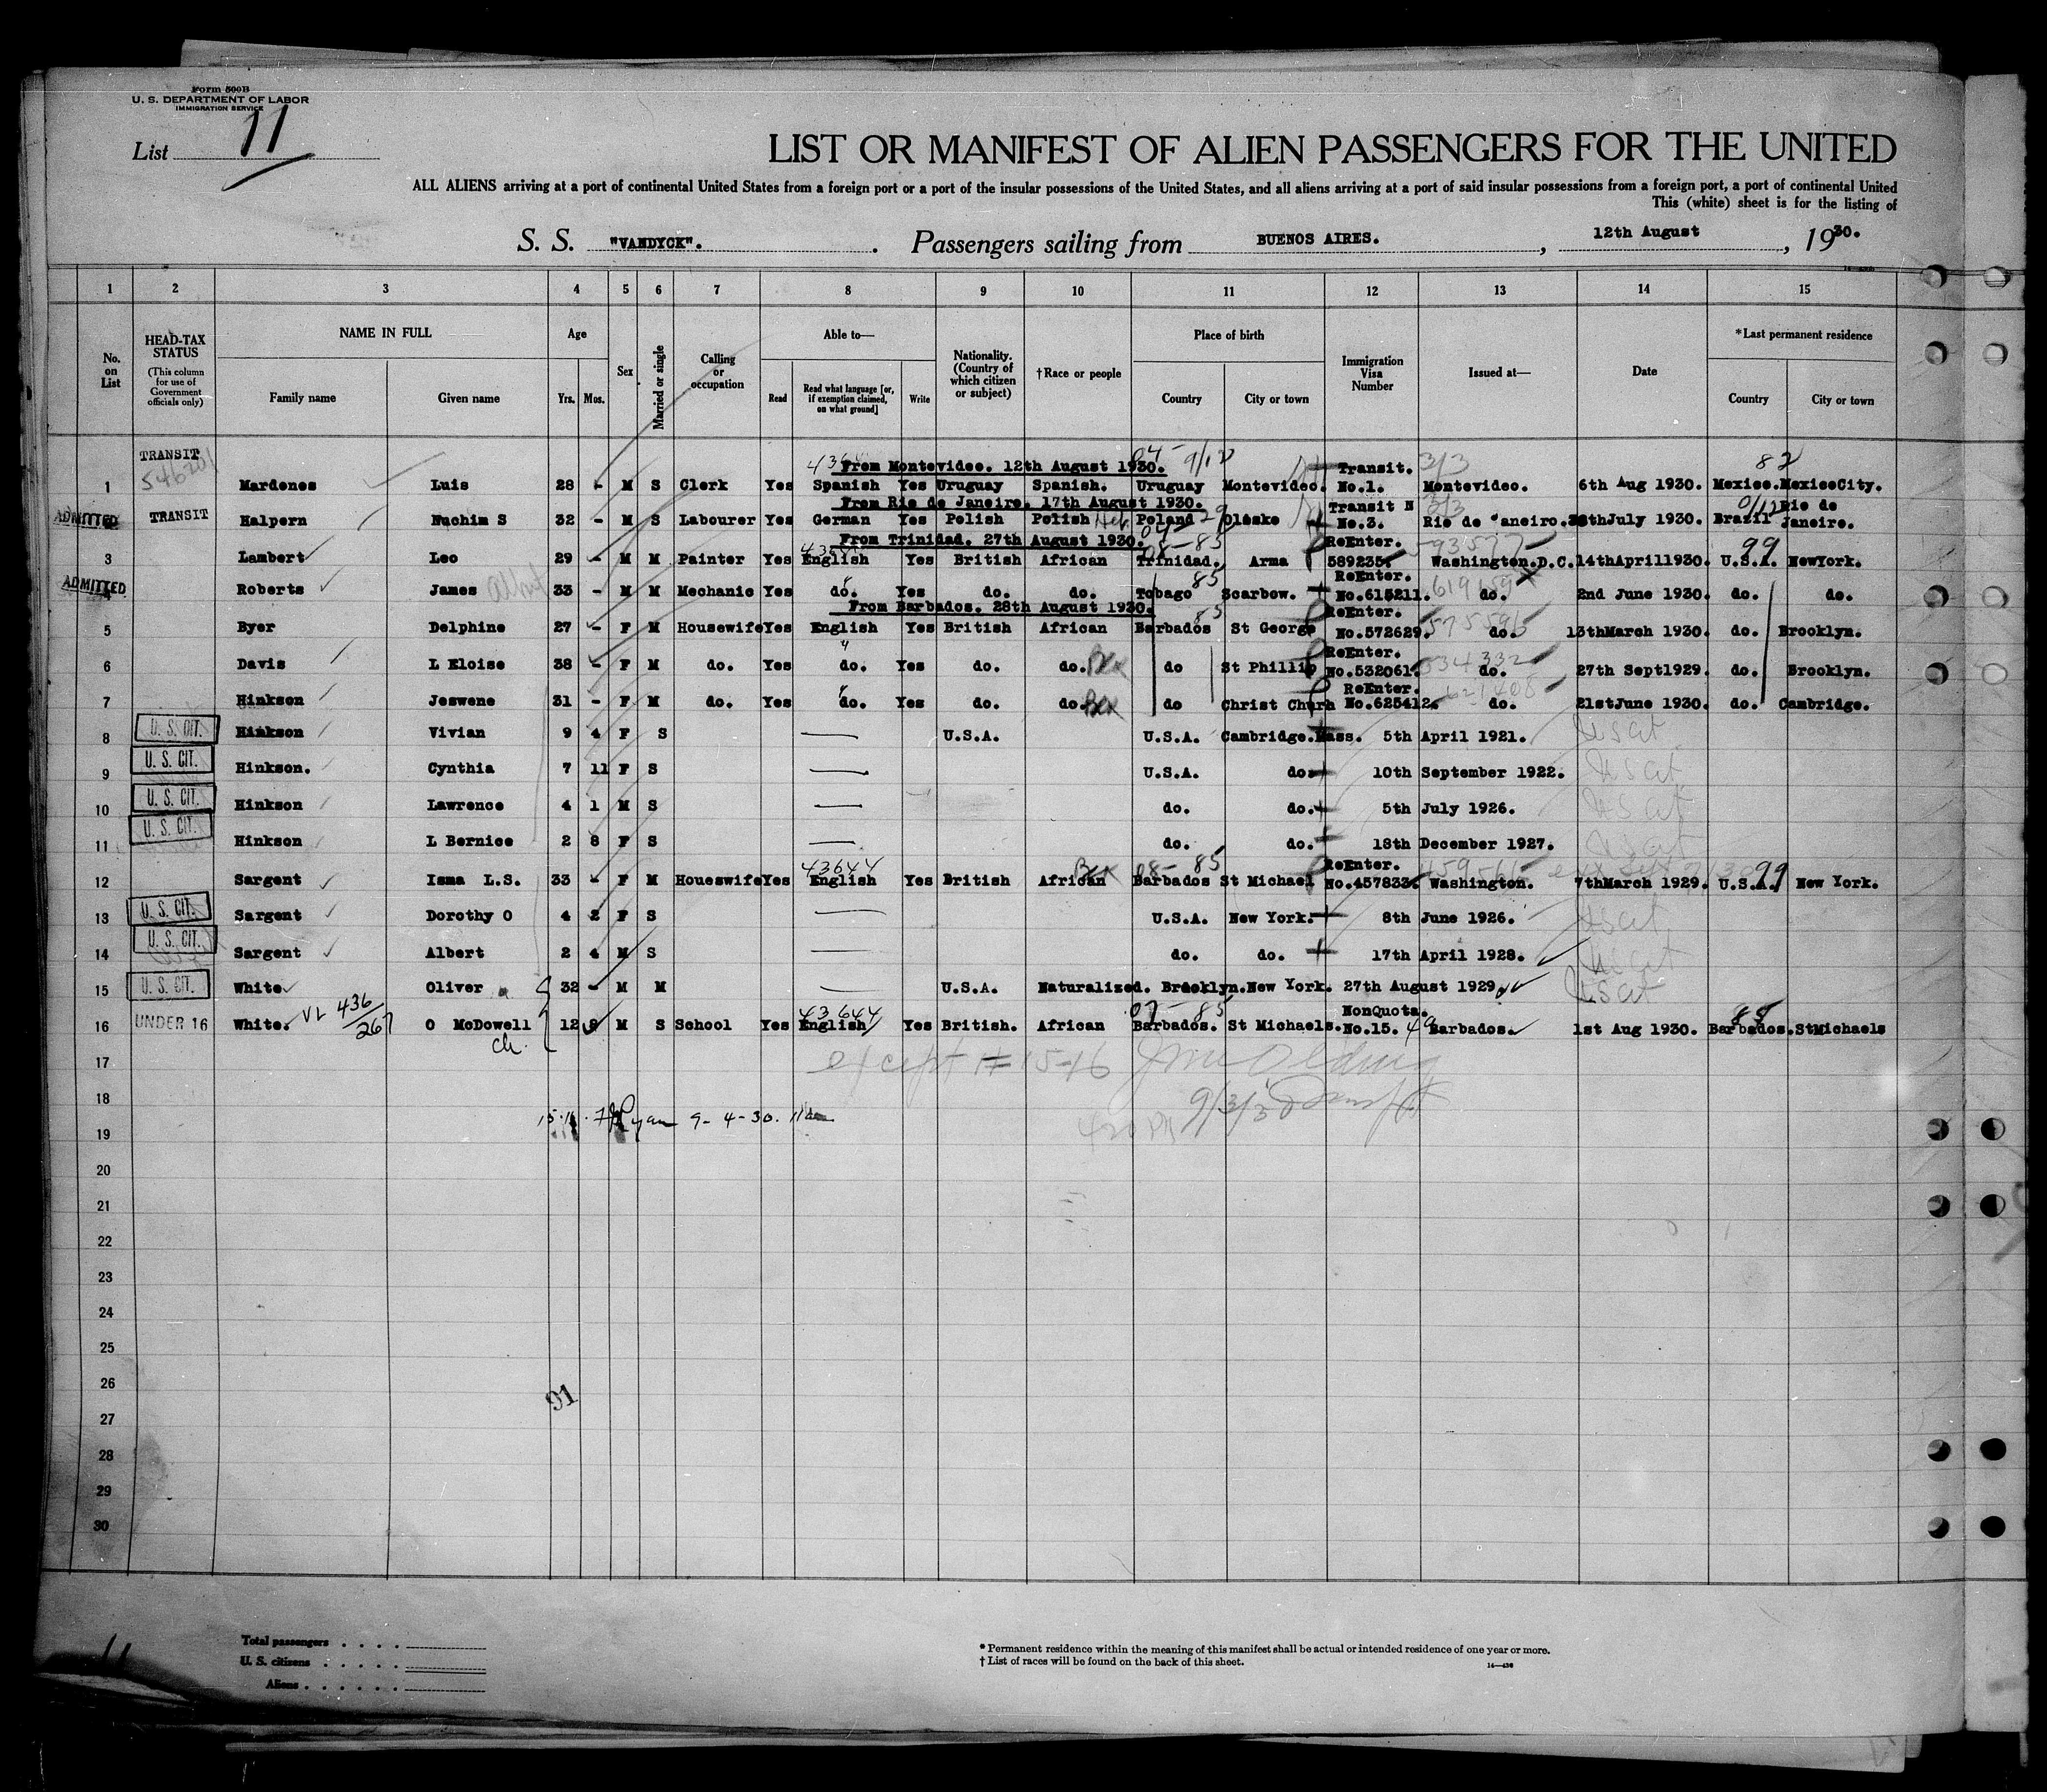 Form 500B
U. S. DEPARTMENT OF LABOR
IMMIGRATION SERVICE
List 11
LIST OR MANIFEST OF ALIEN PASSENGERS FOR THE UNITED
ALL ALIENS arriving at a port of continental United States from a foreign port or a port of the insular possessions of the United States, and all aliens arriving at a port of said insular possessions from a foreign port, a port of continental United
This (white) sheet is for the listing of
S. S. "VANDYCK". Passengers sailing from BUENOS AIRES. , 12th August , 1930.
1 2 3 4 5 6 7 8 9 10 11 12 13 14 15
No. on List
HEAD-TAX STATUS
(This column for use of Government officials only)
NAME IN FULL
Family name Given name
Age
Yrs. Mos.
Sex
Married or single
Calling or occupation
Able to—
Read Read what language [or, if exemption claimed, on what ground] Write
Nationality. (Country of which citizen or subject)
†Race or people
Place of birth
Country City or town
Immigration Visa Number
Issued at—
Date
*Last permanent residence
Country City or town
TRANSIT From Montevideo. 12th August 1930. Transit. 3/3 82
1 546201 Mardenes Luis 28 - M S Clerk Yes Spanish Yes Uruguay Spanish. Uruguay Montevideo. No.1. Montevideo. 6th Aug 1930. Mexico. MexicoCity.
From Rio de Janeiro. 17th August 1930. Transit N 3/3 Rio de
ADMITTED TRANSIT Halpern Nuchim S 32 - M S Labourer Yes German Yes Polish Polish Heb Poland Oleske No.3. Rio de Janeiro. July 1930. Brazil Janeiro.
From Trinidad. 27th August 1930. ReEnter. 99
3 Lambert Leo 29 - M M Painter Yes English Yes British African Trinidad. Arma 589235. Washington.D.C. 14thApril1930. U.S.A. NewYork.
ADMITTED 85 ReEnter.
4 Roberts James Albert 33 - M M Mechanic Yes do. Yes do. do. Tobago Scarbow. No.615211. do. 2nd June 1930. do. do.
From Barbados. 28th August 1930. 85 ReEnter.
5 Byer Delphine 27 - F M Housewife Yes English Yes British African Barbados St George No.572629. 575596 do. 13thMarch 1930. do. Brooklyn.
ReEnter.
6 Davis L Eloise 38 - F M do. Yes do. Yes do. do. do St Phillip No.532061. 534332 do. 27th Sept1929. do. Brooklyn.
ReEnter.
7 Hinkson Jeswene 31 - F M do. Yes do. Yes do. do. do Christ Church No.625412. 621408 do. 21stJune 1930. do. Cambridge.
8 U. S. CIT. Hinkson Vivian 9 4 F S U.S.A. U.S.A. Cambridge.Mass. 5th April 1921. US cit
9 U. S. CIT. Hinkson. Cynthia 7 11 F S U.S.A. do. 10th September 1922. US cit
10 U. S. CIT. Hinkson Lawrence 4 1 M S do. do. 5th July 1926. US cit
11 U. S. CIT. Hinkson L Bernice 2 8 F S do. do. 18th December 1927. US cit
43644 08-85 ReEnter.
12 Sargent Isma L.S. 33 - F M Houeswife Yes English Yes British African Barbados St Michael No.457833. Washington. 7thMarch 1929. U.S.A. 99 New York.
13 U. S. CIT. Sargent Dorothy O 4 2 F S U.S.A. New York. 8th June 1926. US cit
14 U. S. CIT. Sargent Albert 2 4 M S do. do. 17th April 1928. US cit
15 U. S. CIT. White Oliver 32 - M M U.S.A. Naturalized. Brooklyn.New York. 27th August 1929. US cit
43644 07-85 NonQuota. 85
16 UNDER 16 White. VL 436/267 O McDowell ch. 12 9 M S School Yes English Yes British. African Barbados. St Michaels. No.15. Barbados. 1st Aug 1930. Barbados. StMichaels
17 except # 15-16
18 9/3/30
19 Ryan 9-4-30.
20
21
22
23
24
25
26
91
27
28
29
30
11
Total passengers
U. S. citizens
Aliens
* Permanent residence within the meaning of this manifest shall be actual or intended residence of one year or more.
† List of races will be found on the back of this sheet.
14—430